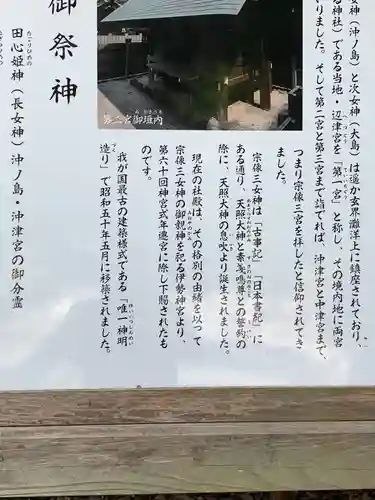 女神(沖ノ島)と次女神(大島)は遥か玄界灘洋上に鎮座されており、
る神社)である当地・辺津宮を「第一宮」と称し、その境内地に両宮
いりました。そして第二宮と第三宮まで詣でれば、沖津宮と中津宮まで、
つまり宗像三宮を拝したと信仰されてき
ました。
宗像三女神は「古事記」「日本書紀」に
ある通り、天照大神と素戔嗚尊との誓約の
際に、天照大神の息吹より誕生されました。
現在の社殿は、その格別の由緒を以って
宗像三女神の御親神を祀る伊勢神宮より、
第六十回神宮式年遷宮に際し下賜されたも
のです。
我が国最古の建築様式である「唯一神明
造り」で昭和五十年五月に移築されました。
第二宮御垣内
御祭神
田心姫神(長女神)沖ノ島・沖津宮の御分霊